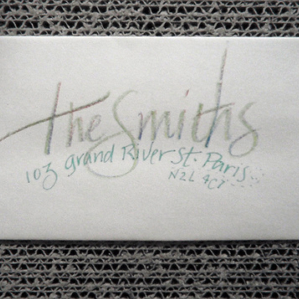 the Smiths
103 Grand River St. Paris
N2L 9C7